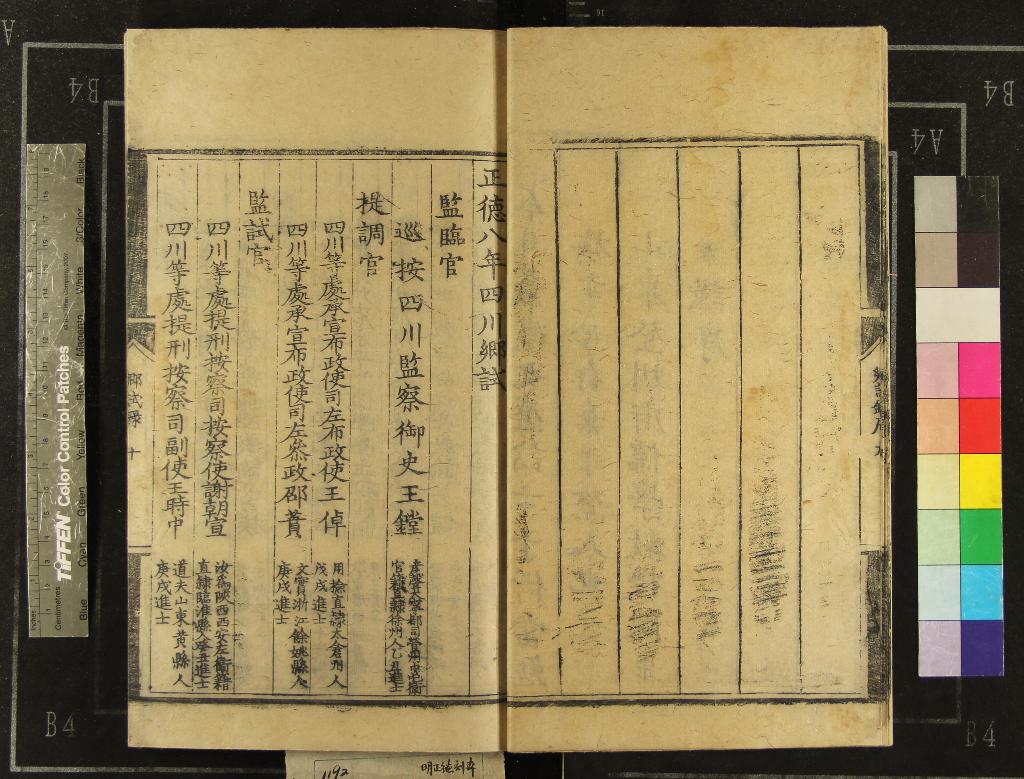 正德八年四川鄉試
監臨官
巡按四川監察御史王鏜
官籍直隸徐州人乙丑進士
提調官
四川等處承宣布政使司左布政使王倬
用檢直隸太倉州人
戊戌進士
四川等處承宣布政使司左叅政邵蕡
文實浙江餘姚縣人
庚戌進士
監試官
四川等處提刑按察司按察使謝朝宣
汝爲陝西西安左衛籍
直隸臨淮縣人癸丑進士
四川等處提刑按察司副使王時中
道夫山東黃縣人
庚戌進士
鄉試錄 十
鄉試錄序
TIFFEN Color Control Patches
Blue Cyan Green Yellow Red Magenta White 3/Color Black
Centimetres
B4
B4
B4
B4
A4
A
1192
明正德刻本